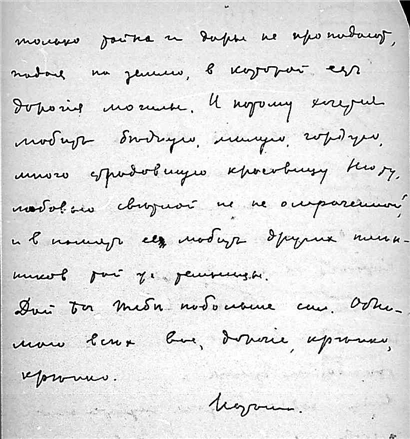 только и дары не пропадают,
падая на землю, в которой есть
дорогія могилы. И потому хочется
любить бѣдную, милую, гордую,
много красавицу
любовью свѣтлой не омраченной,
и в память ее любить других плѣн-
ников той же темницы.
Дай Бог тебѣ побольше сил. Обни-
маю всѣх вас, дорогіе, крѣпко,
крѣпко.